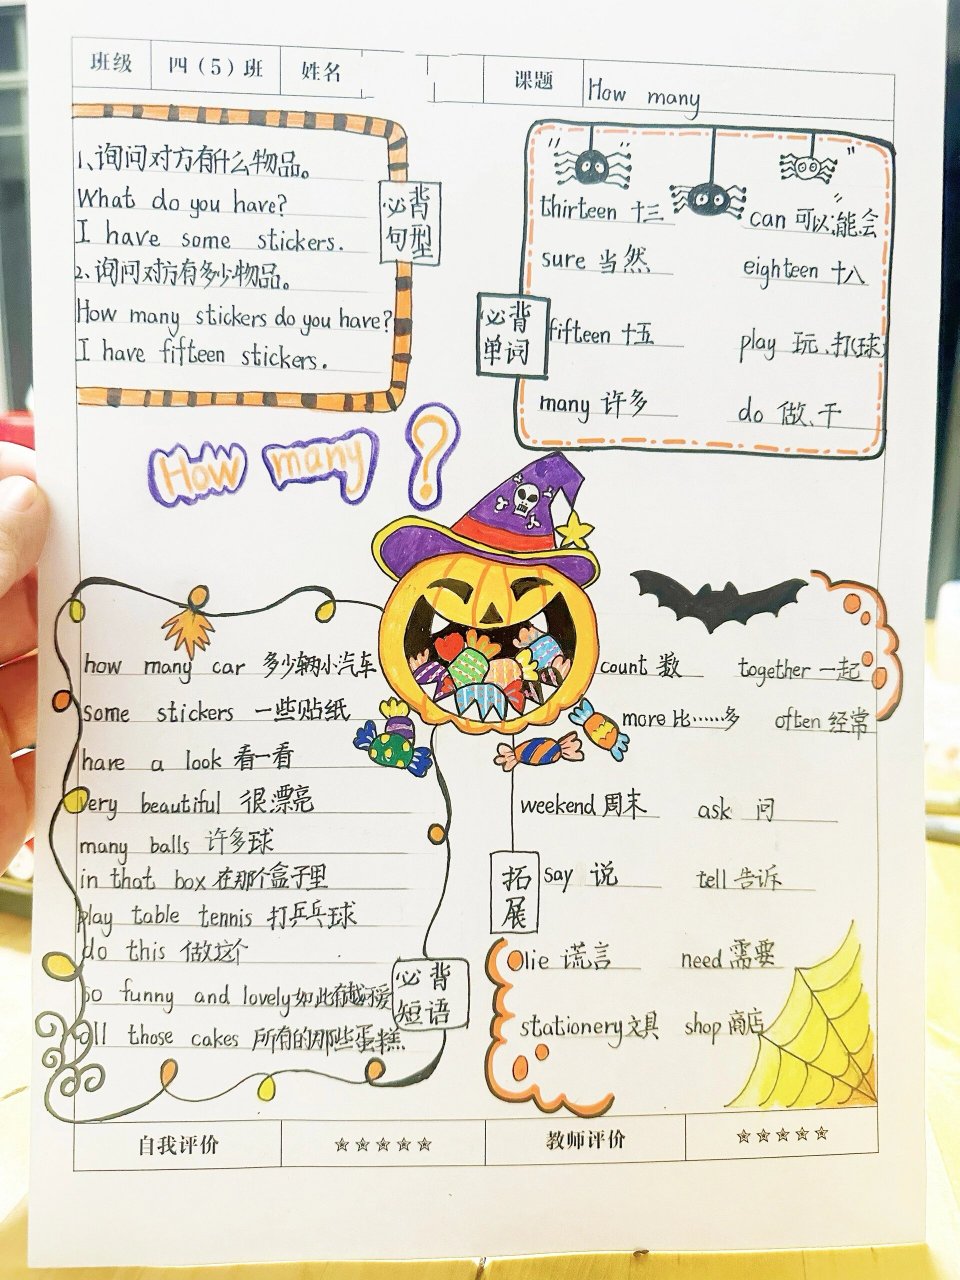 班级 四（5）班 姓名 课题 How many
1、询问对方有什么物品。
What do you have?
I have some stickers.
2、询问对方有多少物品。
How many stickers do you have?
I have fifteen stickers.
必背
句型
thirteen 十三
can 可以;能;会
sure 当然
eighteen 十八
fifteen 十五
play 玩、打(球)
many 许多
do 做、干
必背
单词
How many ?
how many car 多少辆小汽车
some stickers 一些贴纸
have a look 看一看
very beautiful 很漂亮
many balls 许多球
in that box 在那个盒子里
play table tennis 打乒乓球
do this 做这个
so funny and lovely
all those cakes 所有的那些蛋糕
必背
短语
count 数
together 一起
more 比……多
often 经常
weekend 周末
ask 问
say 说
tell 告诉
lie 谎言
need 需要
stationery 文具
shop 商店
拓
展
自我评价 ☆☆☆☆☆ 教师评价 ☆☆☆☆☆